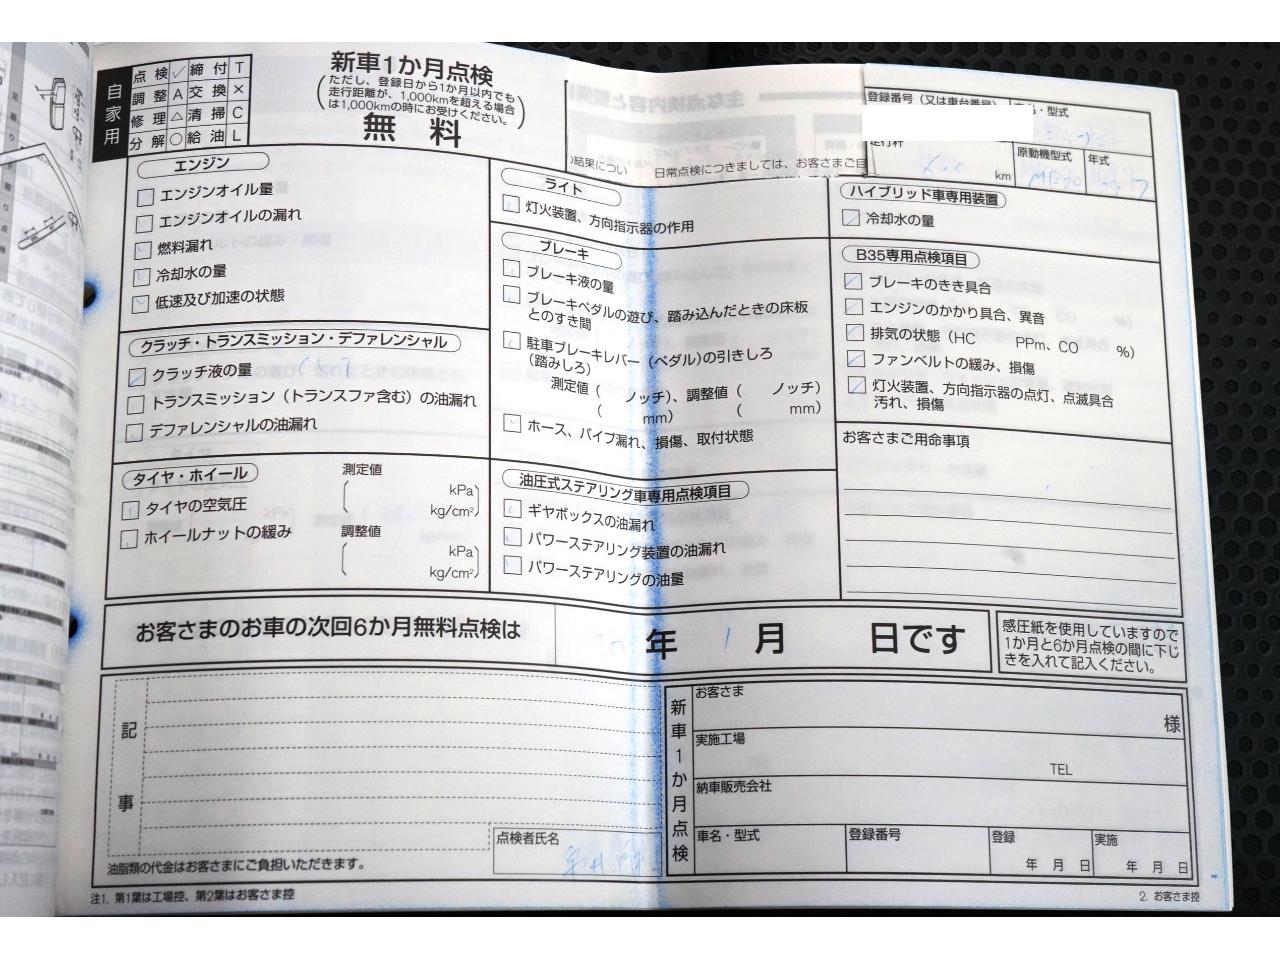 自家用
点検 ✓ 締付 T
調整 A 交換 ×
修理 △ 清掃 C
分解 ○ 給油 L
新車1か月点検
(ただし、登録日から1か月以内でも
走行距離が、1,000kmを超える場合
は1,000kmの時にお受けください。)
無料
主な点検内容と
)結果につい
日常点検につきましては、お客さまご自
登録番号（又は車台番号）
名・型式
走行杆
600 km
原動機型式
年式
エンジン
エンジンオイル量
エンジンオイルの漏れ
燃料漏れ
冷却水の量
低速及び加速の状態
クラッチ・トランスミッション・デファレンシャル
クラッチ液の量
トランスミッション（トランスファ含む）の油漏れ
デファレンシャルの油漏れ
タイヤ・ホイール
タイヤの空気圧
ホイールナットの緩み
測定値
kPa
kg/cm²
調整値
kPa
kg/cm²
ライト
灯火装置、方向指示器の作用
ブレーキ
ブレーキ液の量
ブレーキペダルの遊び、踏み込んだときの床板
とのすき間
駐車ブレーキレバー（ペダル）の引きしろ
（踏みしろ）
測定値（ ノッチ）、調整値（ ノッチ）
（ mm） （ mm）
ホース、パイプ漏れ、損傷、取付状態
油圧式ステアリング車専用点検項目
ギヤボックスの油漏れ
パワーステアリング装置の油漏れ
パワーステアリングの油量
ハイブリッド車専用装置
冷却水の量
B35専用点検項目
ブレーキのきき具合
エンジンのかかり具合、異音
排気の状態（HC PPm、CO %）
ファンベルトの緩み、損傷
灯火装置、方向指示器の点灯、点滅具合
汚れ、損傷
お客さまご用命事項
お客さまのお車の次回6か月無料点検は
年 1 月 日です
感圧紙を使用していますので
1か月と6か月点検の間に下じ
きを入れて記入ください。
記事
油脂類の代金はお客さまにご負担いただきます。
点検者氏名
新車1か月点検
お客さま
様
実施工場
TEL
納車販売会社
車名・型式
登録番号
登録
年 月 日
実施
年 月 日
注1. 第1葉は工場控、第2葉はお客さま控
2. お客さま控